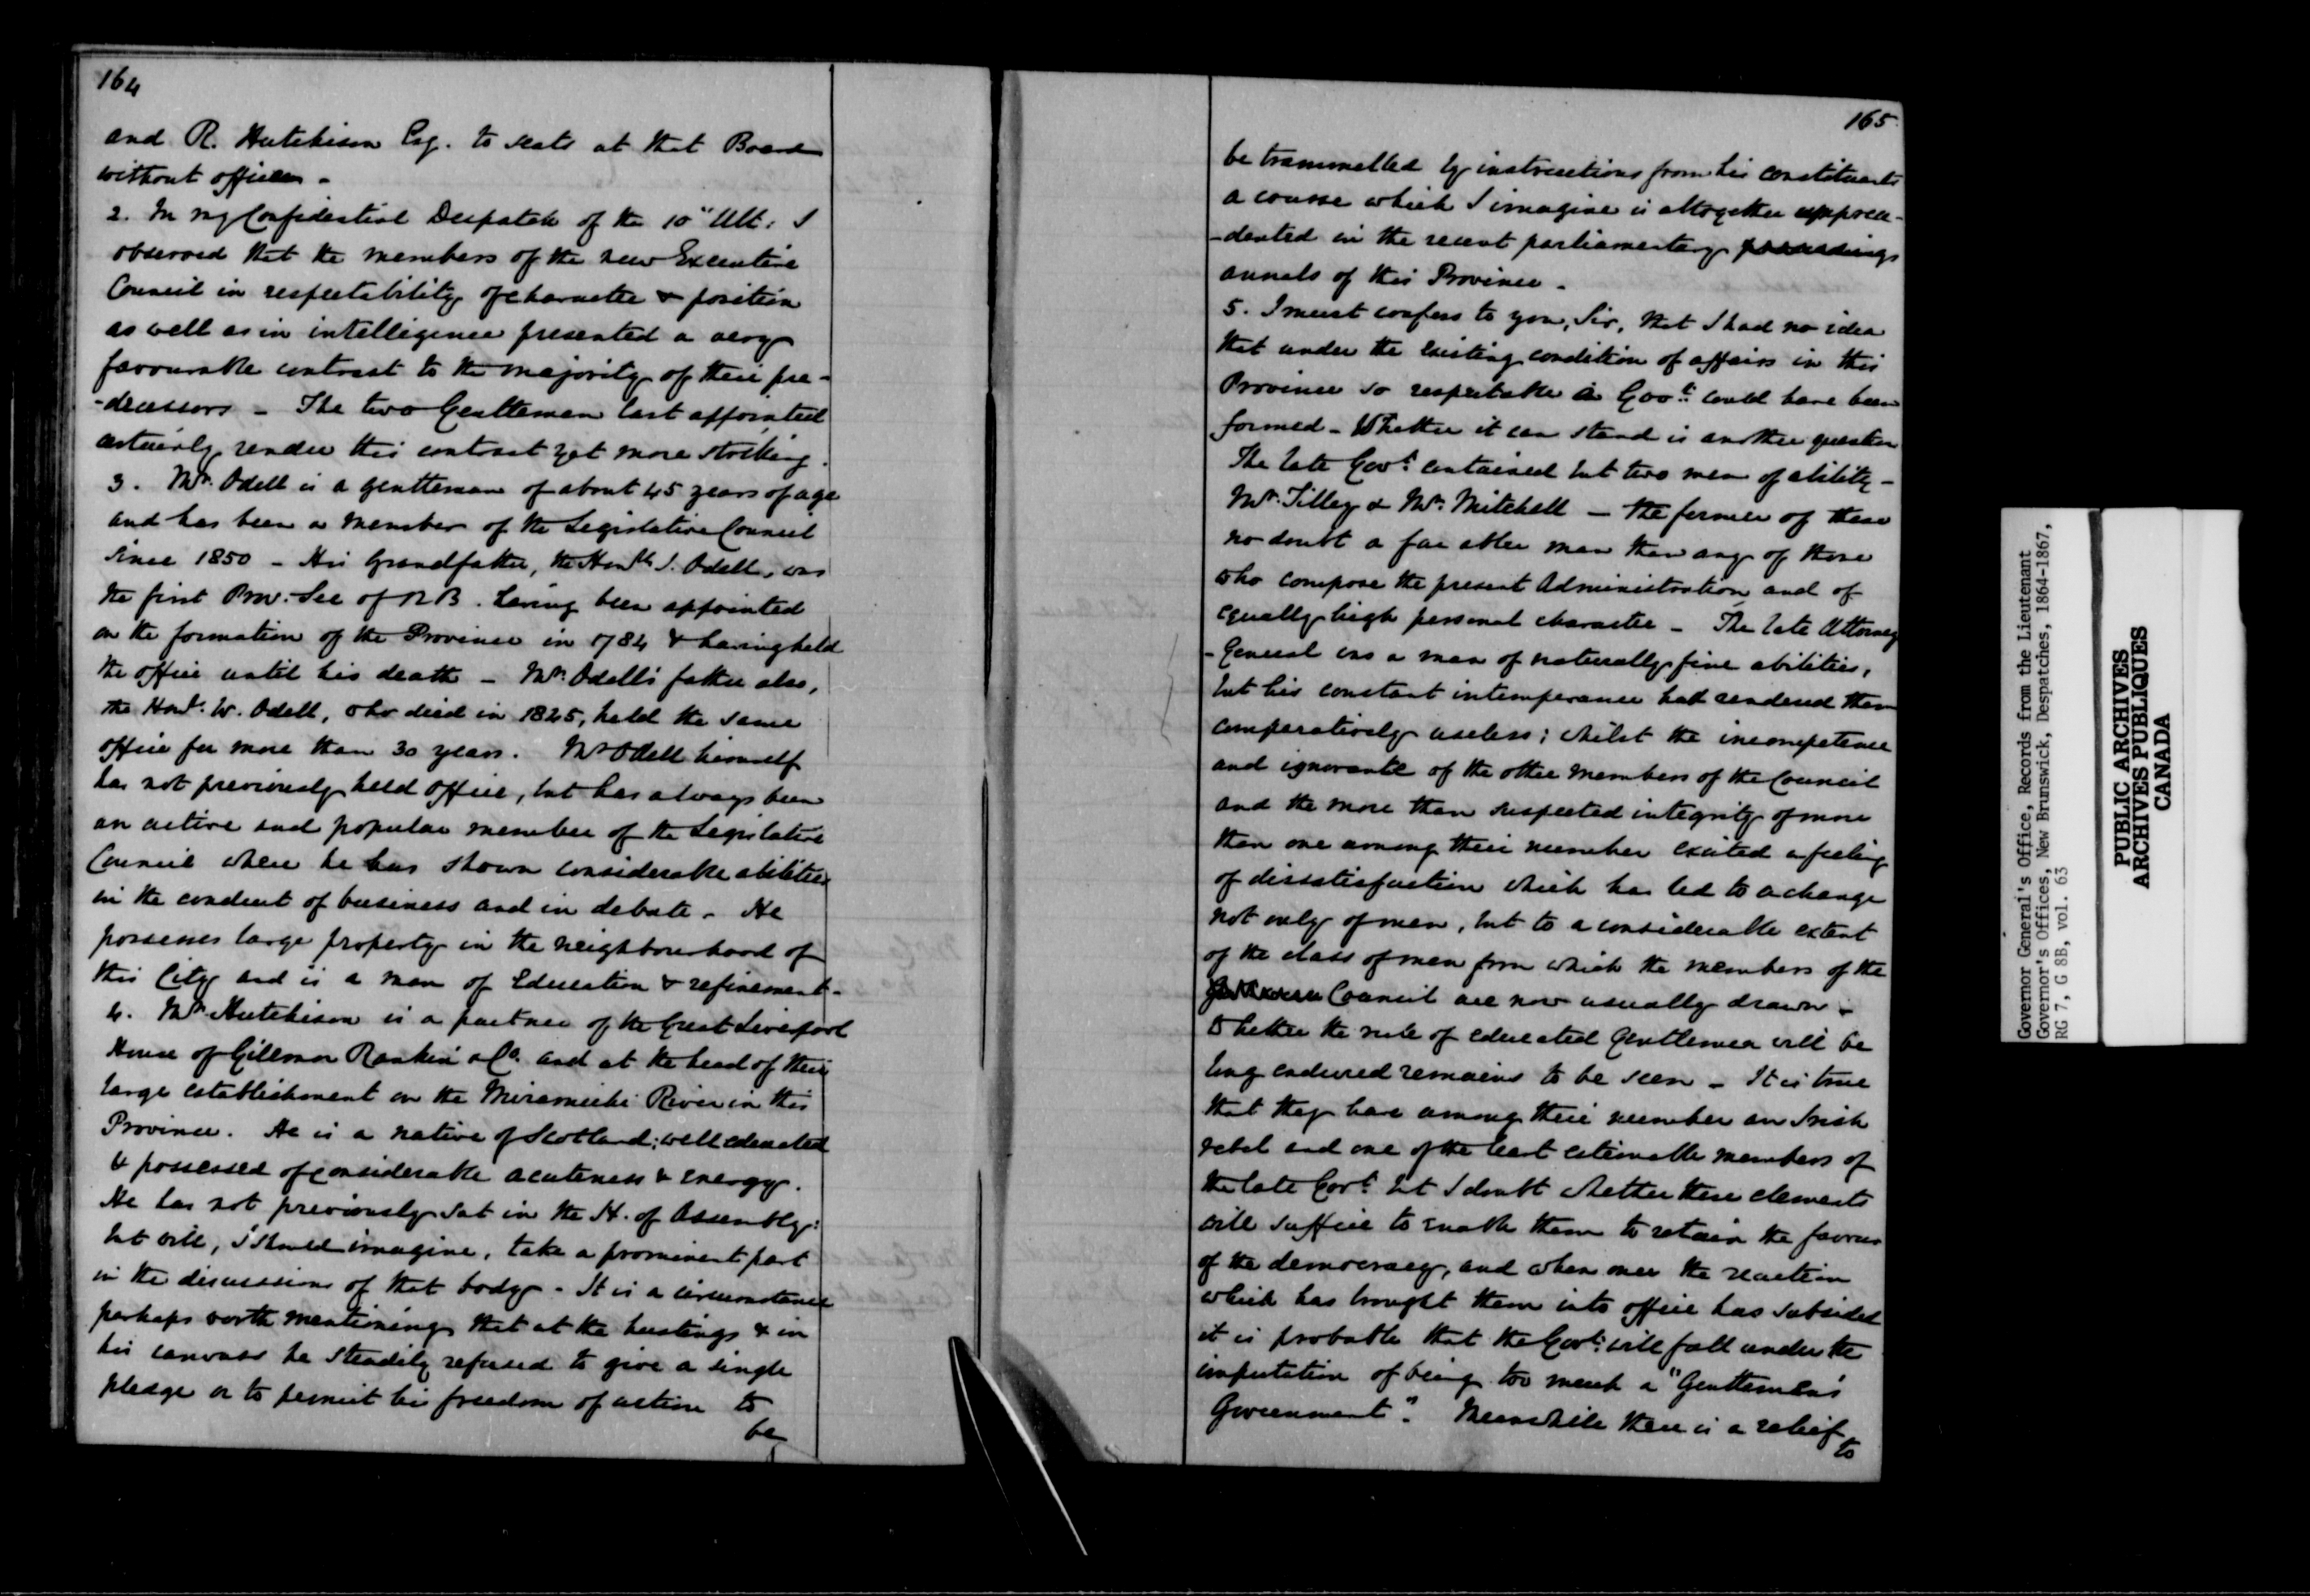 164
and R. Hutchison Esq. to seats at that Board
without offices -
2. In my Confidential Despatch of the 10" Ult: I
observed that the members of the new Executive
Council in respectability of character & position
as well as in intelligence presented a very
favourable contrast to the majority of their pre-
-decessors - The two Gentlemen last appointed
certainly render this contrast yet more striking.
3. Mr. Odell is a gentleman of about 45 years of age
and has been a member of the Legislative Council
since 1850 - His Grandfather, the Honble J. Odell, was
the first Prov: Sec of N B. having been appointed
on the formation of the Province in 1784 & having held
the office until his death - Mr. Odell's father also,
the Honl. W. Odell, who died in 1825, held the same
office for more than 30 years. Mr Odell himself
has not previously held office, but has always been
an active and popular member of the Legislative
Council where he has shown considerable abilities
in the conduct of business and in debate - He
possesses large property in the neighbourhood of
this City and is a man of Education & refinement -
4. Mr. Hutchison is a partner of the Great Liverpool
House of Gillmor Rankin & Co. and at the head of their
large establishment on the Miramichi River in this
Province. He is a native of Scotland; well educated
& possessed of considerable acuteness & energy.
He has not previously sat in the H. of Assembly:
but will, I should imagine, take a prominent part
in the discussions of that body - It is a circumstance
perhaps worth mentioning that at the hustings & in
his canvass he steadily refused to give a single
pledge or to permit his freedom of action to
be
165.
be trammelled by instructions from his constituents
a course which I imagine is altogether unprece-
-dented in the recent parliamentary proceedings
annals of this Province -
5. I must confess to you, Sir, that I had no idea
that under the existing condition of affairs in this
Province so respectable a Govt: could have been
formed - Whether it can stand is another question
The late Govt: contained but two men of ability -
Mr. Tilley & Mr. Mitchell - the former of these
no doubt a far abler man than any of those
who compose the present Administration and of
equally high personal character - The late Attorney
-General was a man of naturally fine abilities,
but his constant intemperance had rendered them
comparatively useless; whilst the incompetence
and ignorance of the other members of the Council
and the more than suspected integrity of more
than one among their number excited a feeling
of dissatisfaction which has led to a change
not only of men, but to a considerable extent
of the class of men from which the members of the
Council are now usually drawn -
Whether the rule of educated Gentlemen will be
long endured remains to be seen - It is true
that they have among their number an Irish
rebel and one of the least estimable members of
the late Govt: but I doubt whether these elements
will suffice to enable them to retain the favour
of the democracy, and when once the reaction
which has brought them into office has subsided
it is probable that the Govt: will fall under the
imputation of being too much a "Gentlemen's
Government". Meanwhile there is a relief
to
Governor General's Office, Records from the Lieutenant
Governor's Offices, New Brunswick, Despatches, 1864-1867,
RG 7, G 8B, vol. 63
PUBLIC ARCHIVES
ARCHIVES PUBLIQUES
CANADA